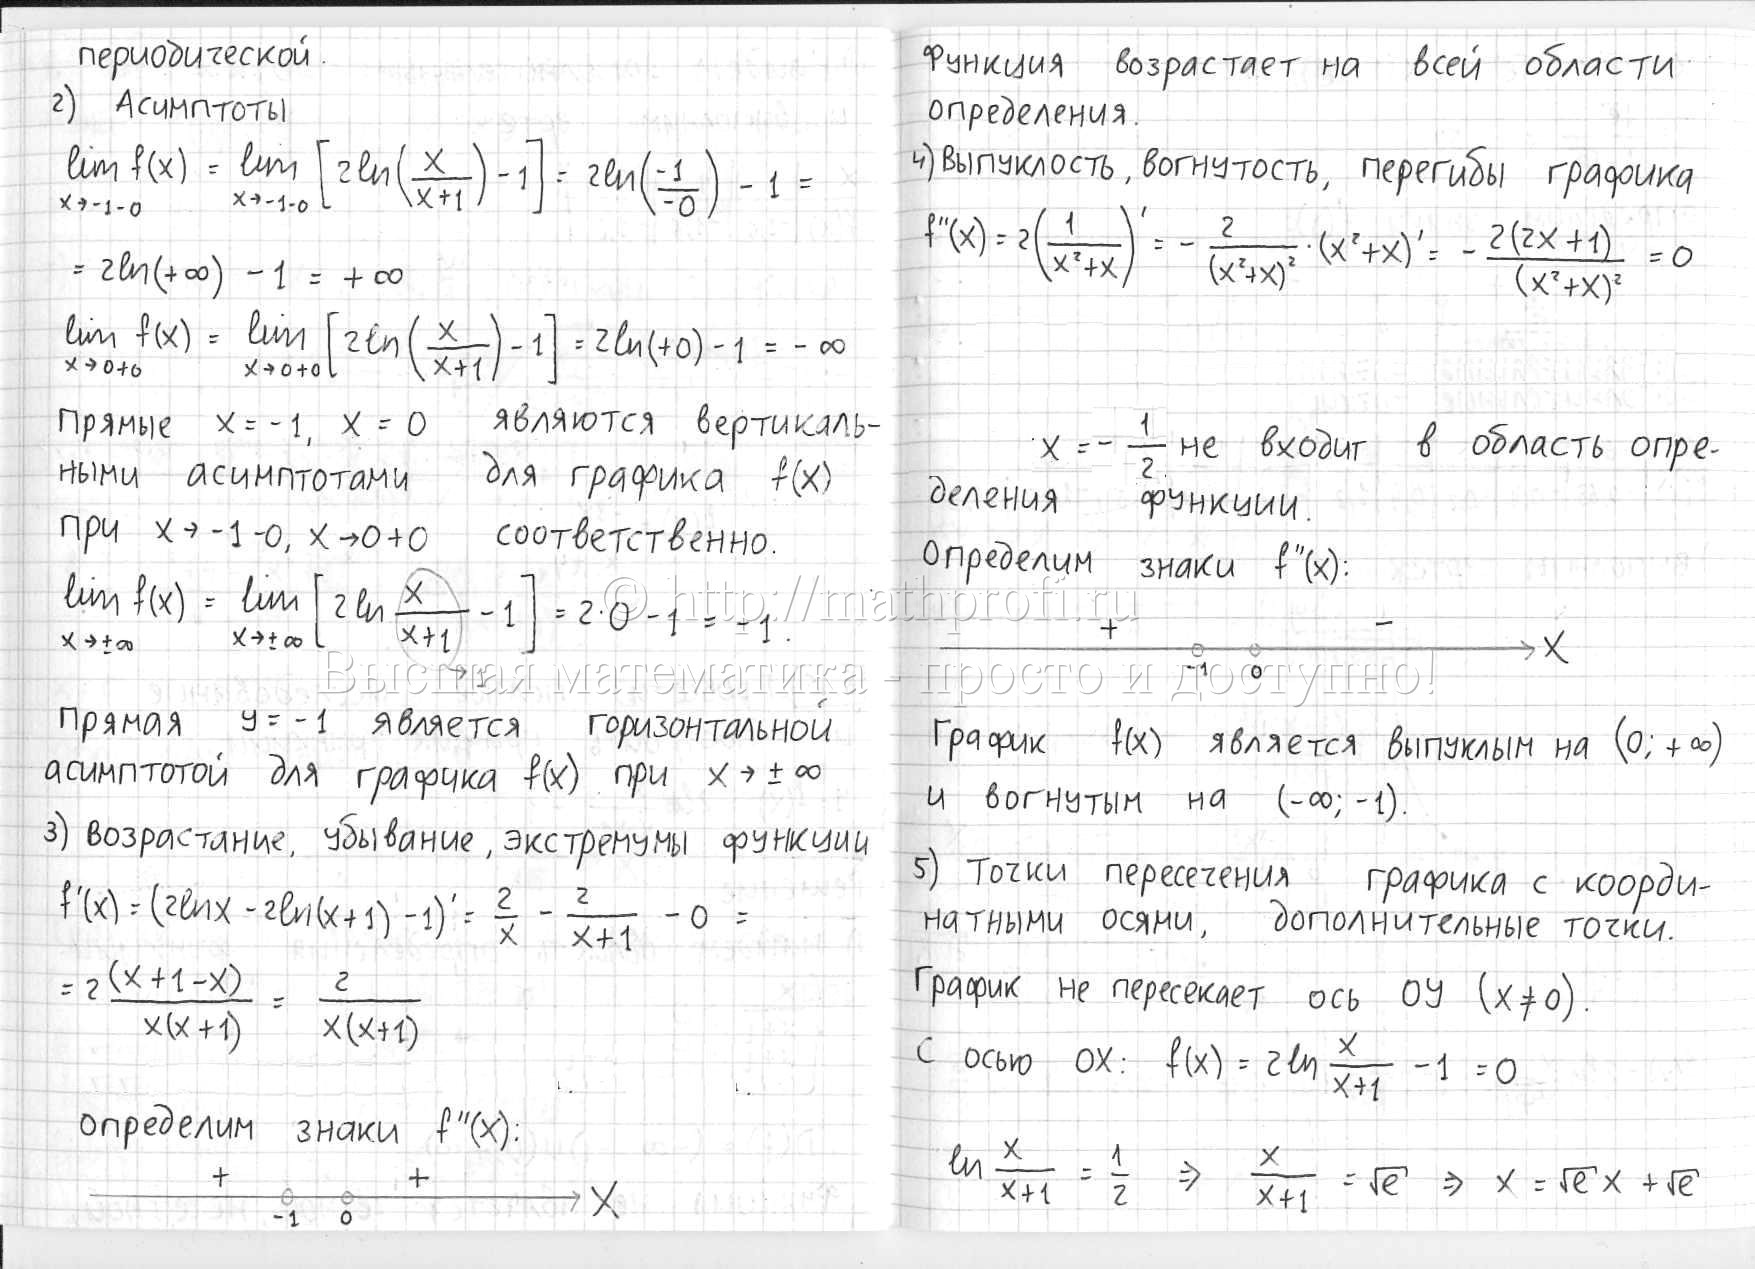 периодической.
2) Асимптоты
lim f(x) = lim [2ln(x/(x+1)) - 1] = 2ln(-1/-0) - 1 =
x→-1-0 x→-1-0
= 2ln(+∞) - 1 = +∞
lim f(x) = lim [2ln(x/(x+1)) - 1] = 2ln(+0) - 1 = -∞
x→0+0 x→0+0
Прямые x = -1, x = 0 являются вертикаль-
ными асимптотами для графика f(x)
при x→-1-0, x→0+0 соответственно.
lim f(x) = lim [2ln x/(x+1) - 1] = 2·0 - 1 = -1.
x→±∞ x→±∞
→1
Прямая y = -1 является горизонтальной
асимптотой для графика f(x) при x→±∞
3) Возрастание, убывание, экстремумы функции
f'(x) = (2lnx - 2ln(x+1) - 1)' = 2/x - 2/(x+1) - 0 =
= 2 (x+1-x)/(x(x+1)) = 2/(x(x+1))
определим знаки f"(x):
+ +
-1 0 X
Функция возрастает на всей области
определения.
4) Выпуклость, вогнутость, перегибы графика
f"(x) = 2(1/(x²+x))' = - 2/(x²+x)² · (x²+x)' = - 2(2x+1)/(x²+x)² = 0
x = - 1/2 не входит в область опре-
деления функции.
Определим знаки f"(x):
+ -
-1 0 X
График f(x) является выпуклым на (0; +∞)
и вогнутым на (-∞; -1).
5) Точки пересечения графика с коорди-
натными осями, дополнительные точки.
График не пересекает ось OY (x ≠ 0).
С осью OX: f(x) = 2ln x/(x+1) - 1 = 0
ln x/(x+1) = 1/2 ⇒ x/(x+1) = √e ⇒ x = √e x + √e
© http://mathprofi.ru
Высшая математика - просто и доступно!